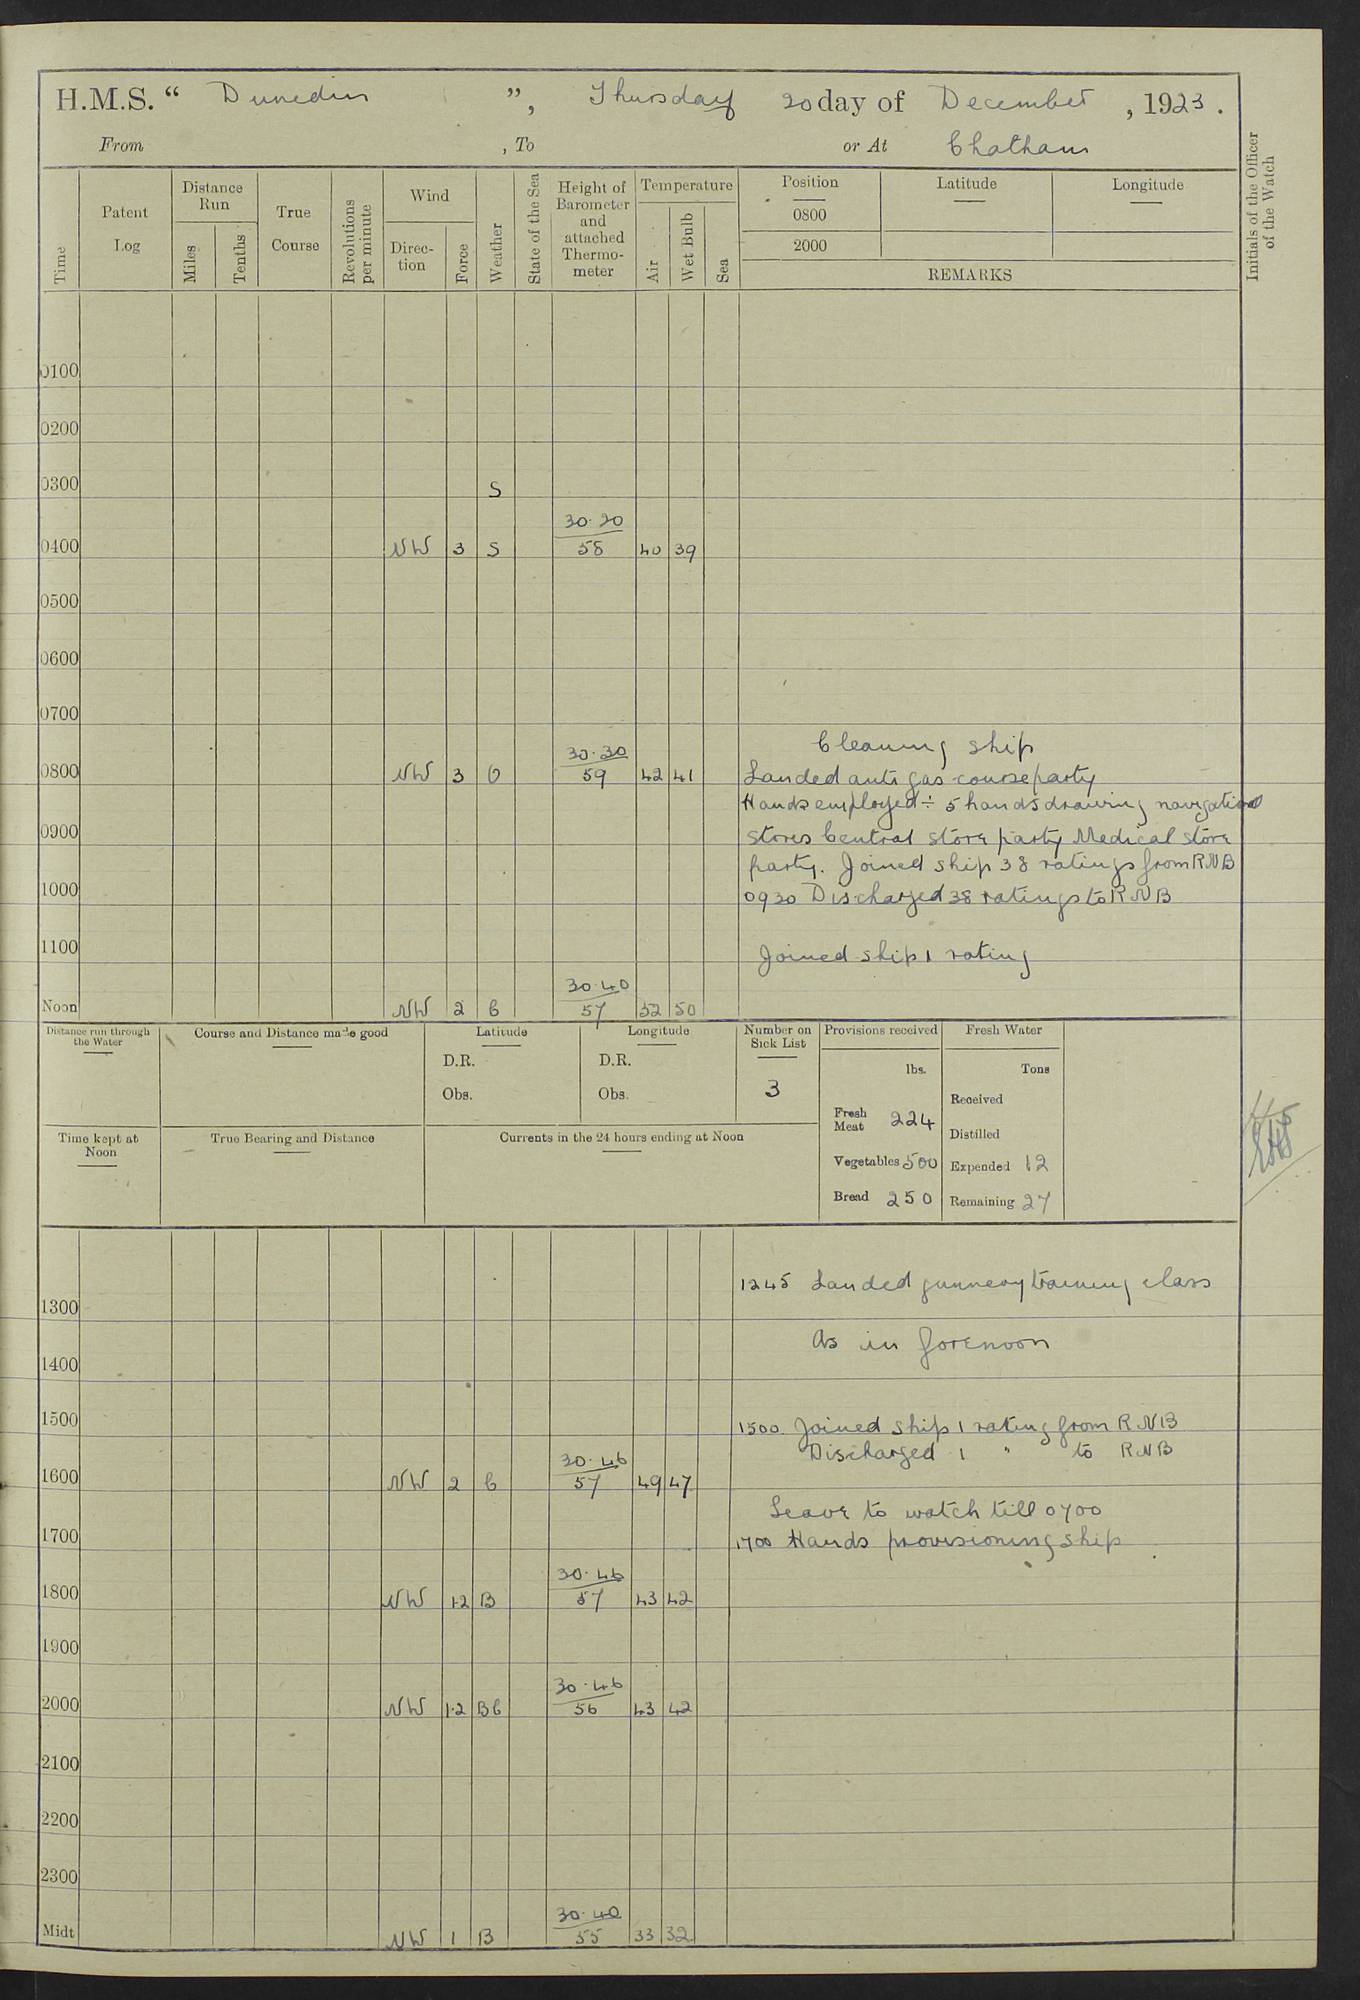 H.M.S. “ Dunedin ”, Thursday 20 day of December, 1923.
From , To or At Chatham
Initials of the Officer of the Watch
Time
Patent Log
Distance Run
Miles
Tenths
True Course
Revolutions per minute
Wind
Direc-tion
Force
Weather
State of the Sea
Height of Barometer and attached Thermo-meter
Temperature
Air
Wet Bulb
Sea
Position Latitude Longitude
0800
2000
REMARKS
0100
0200
0300 S
30.20
0400 NW 3 S 58 40 39
0500
0600
0700
Cleaning ship
30.30
0800 NW 3 O 59 42 41 Landed anti gas course party
Hands employed ÷ 5 hands drawing navigational
0900 stores Central store party Medical store
party. Joined ship 38 ratings from RNB
1000 0930 Discharged 38 ratings to RNB
1100 Joined ship 1 rating
30.40
Noon NW 2 C 57 52 50
Distance run through the Water
Course and Distance made good
Latitude
D.R.
Obs.
Longitude
D.R.
Obs.
Number on Sick List
3
Provisions received
lbs.
Fresh Meat 224
Vegetables 500
Bread 250
Fresh Water
Tons
Received
Distilled
Expended 12
Remaining 27
Time kept at Noon
True Bearing and Distance
Currents in the 24 hours ending at Noon
1245 Landed gunnery training class
1300
As in forenoon
1400
1500 1500 Joined ship 1 rating from RNB
Discharged 1 " to RNB
30.46
1600 NW 2 C 57 49 47
Leave to watch till 0700
1700 1700 Hands provisioning ship
30.46
1800 NW 1.2 B 57 43 42
1900
30.46
2000 NW 1.2 BC 56 43 42
2100
2200
2300
30.40
Midt NW 1 B 55 33 32